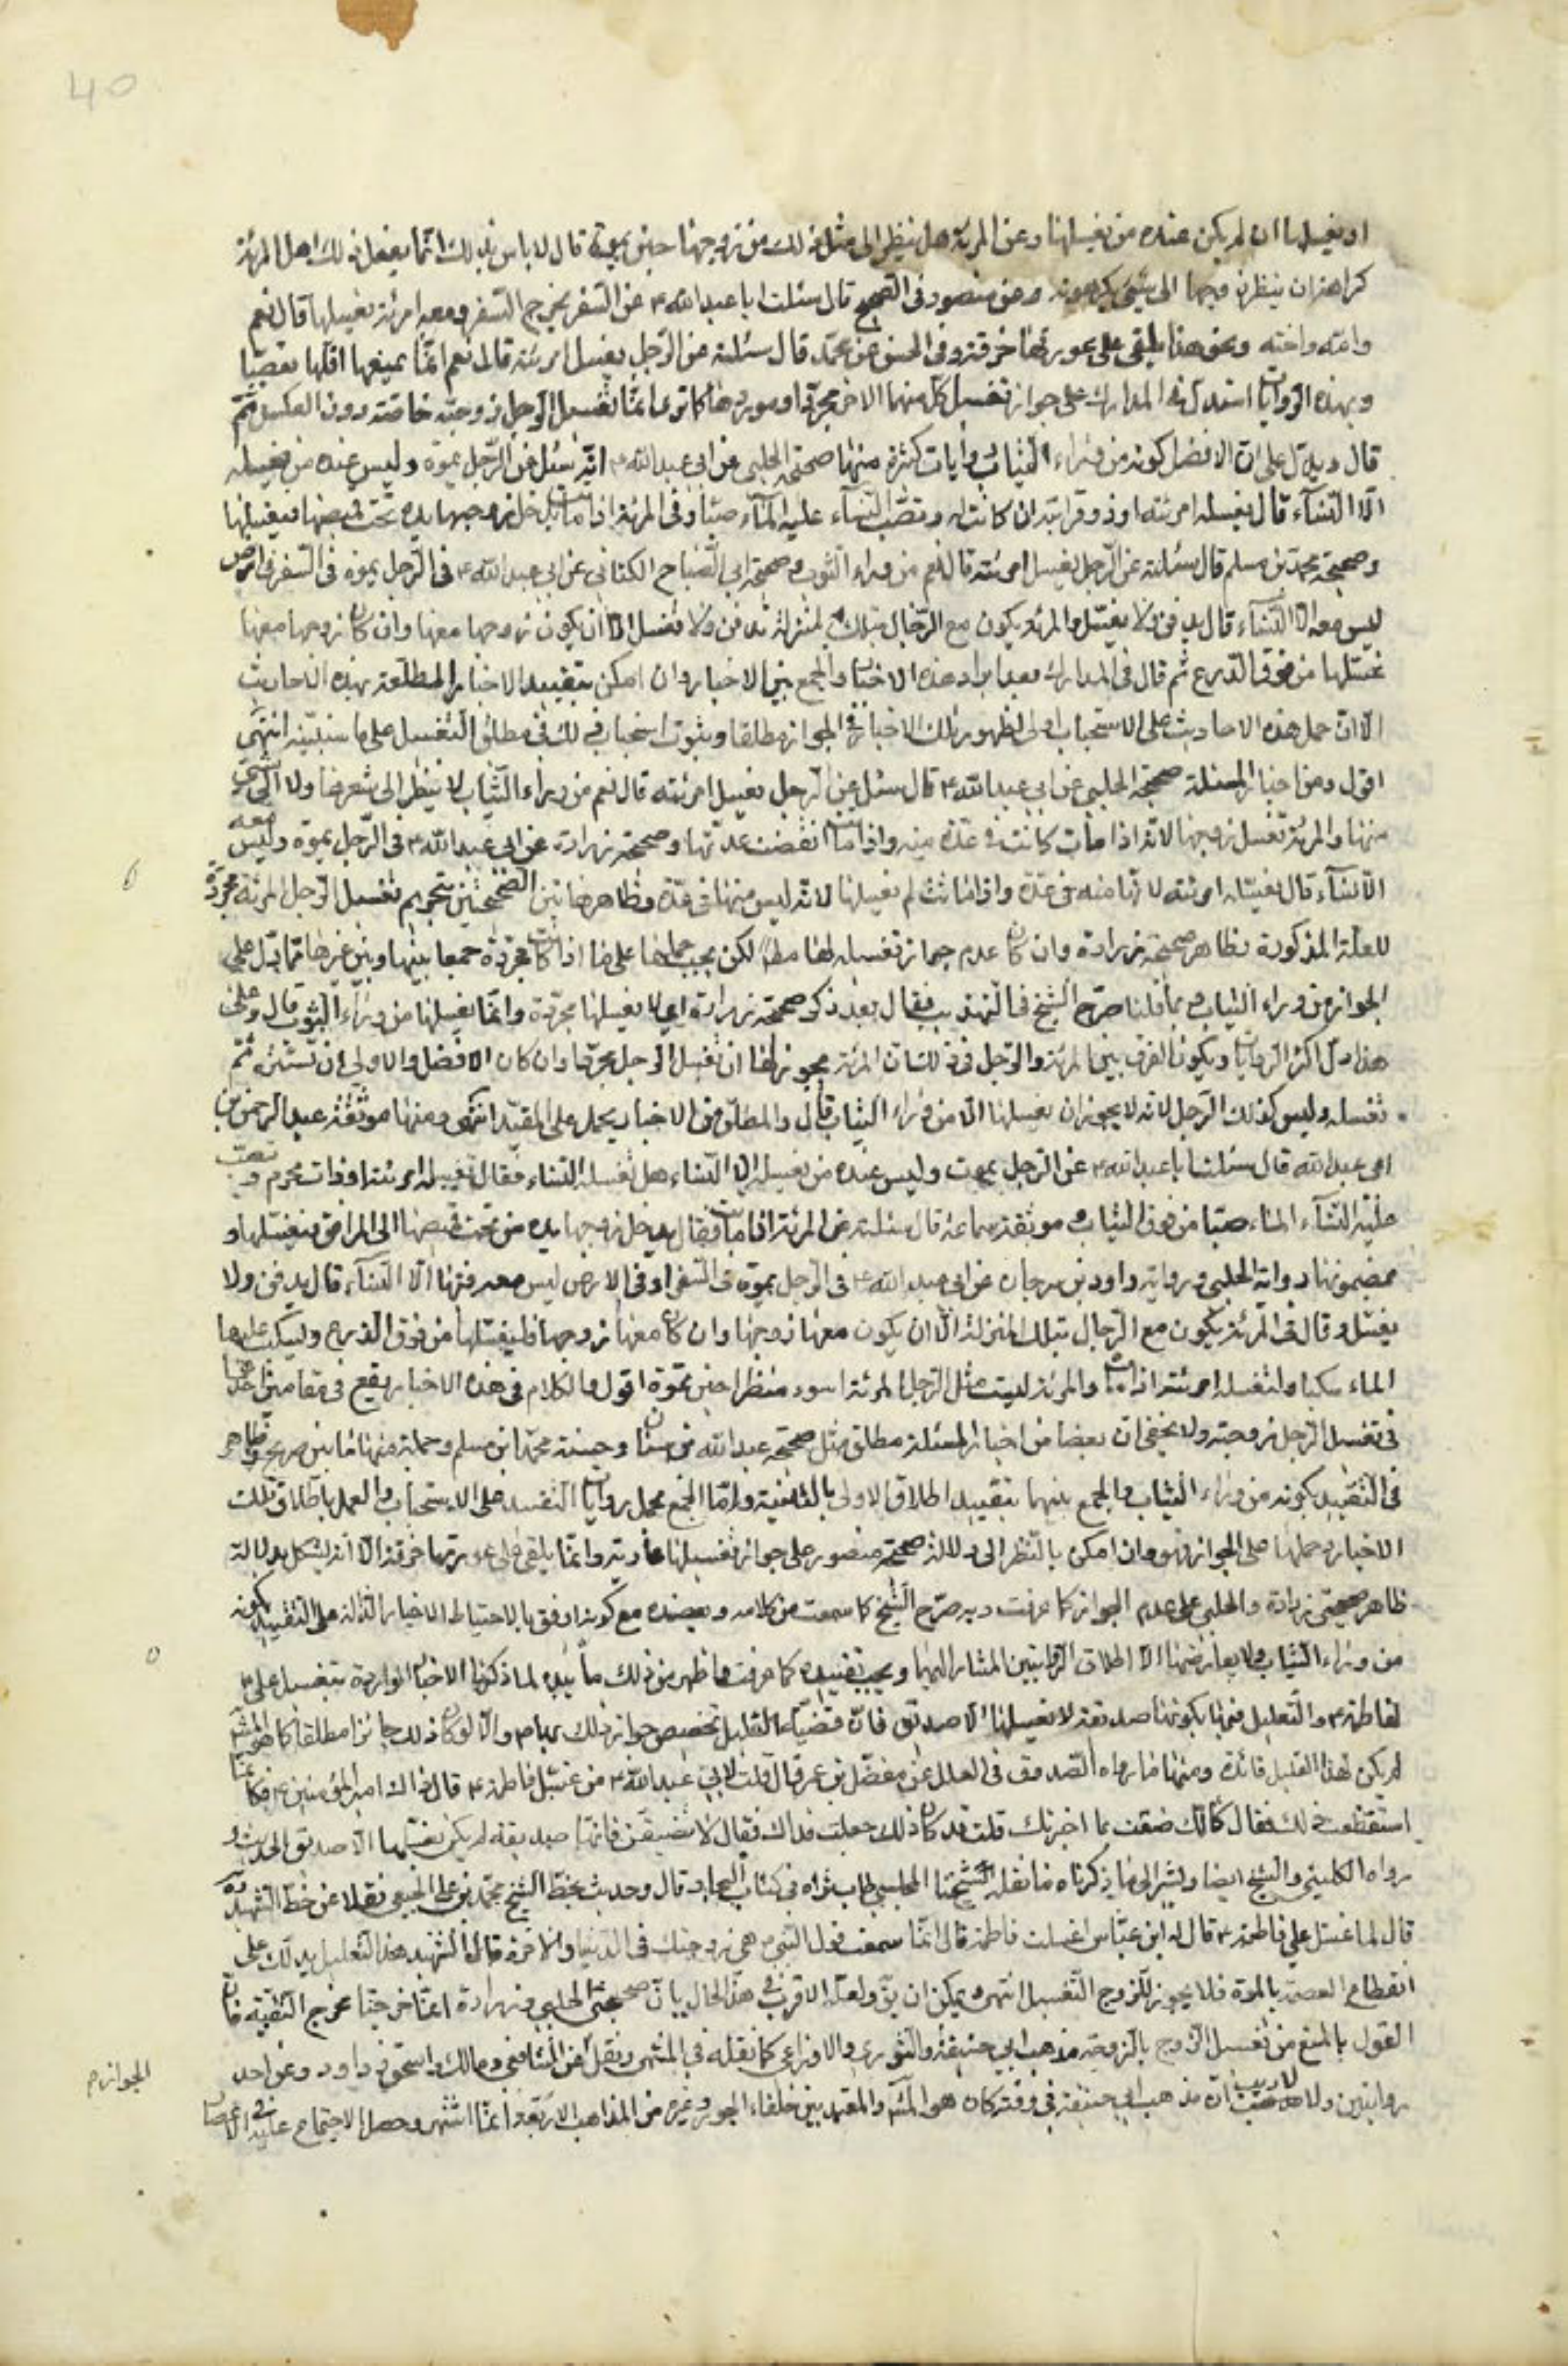 او يغسلها ان لم يكن عنده من يغسلها وعن المرئة هل ينظر الى مثل ذلك من زوجها حين يموت قال لا باس بذلك انما يفعل ذلك اهل المرئة
كراهة ان ينظر زوجها الى شئ يكرهونه وعن منصور في الصحيح قال سئلت ابا عبد الله ع عن السفر يخرج السفر ومعه امرئة يغسلها قال نعم
وامه واخته ونحو هذا يلقى على عورتها خرقة وفي الحسن عن محمد قال سئلته عن الرجل يغسل امرئته قال نعم انما يمنعها اهلها تعصبا
وبهذه الروايات استدل في المدارك على جواز تغسيل كل منهما الاخر مجردا وموردها كما ترى انما تغسيل الرجل زوجته خاصة دون العكس ثم
قال ويدل على ان الافضل كونه من وراء الثياب روايات كثيرة منها صحيحة الحلبي عن ابي عبد الله ع انه سئل عن الرجل يموت وليس عنده من يغسله
الا النسآء قال يغسله امرئته او ذو قرابته ان كانت له وتصب النسآء عليه المآء صبا وفي المرئة اذا ماتت يدخل زوجها يده تحت قميصها فيغسلها
وصحيحة محمد بن مسلم قال سئلته عن الرجل يغسل امرئته قال نعم من وراء الثوب وصحيحة ابي الصباح الكناني عن ابي عبد الله ع في الرجل يموت في السفر في ارض
ليس معه الا النسآء قال يدفن ولا يغسل والمرئة يكون مع الرجال بتلك المنزلة تدفن ولا تغسل الا ان يكون زوجها معها وان كان زوجها معها
غسلها من فوق الدرع ثم قال في المدارك بعد ايراد هذه الاخبار والجمع بين الاخبار وان امكن بتقييد الاخبار المطلقة بهذه الاحاديث
الا ان حمل هذه الاحاديث على الاستحباب اولى لظهور تلك الاخبار في الجواز مطلقا وثبوت استحباب ذلك في مطلق التغسيل على ما سنبينه انتهى
اقول ومن اخبار المسئلة صحيحة الحلبي عن ابي عبد الله ع قال سئل عن الرجل يغسل امرئته قال نعم من وراء الثياب لا ينظر الى شعرها ولا الى شئ
منها والمرئة تغسل زوجها لانه اذا مات كانت في عدة منه واذا ماتت انقضت عدتها وصحيحة زرارة عن ابي عبد الله ع في الرجل يموت وليس معه
الا النسآء قال يغسله امرئته لانها منه في عدة واذا ماتت لم يغسلها لانه ليس منها في عدة وظاهر هاتين الصحيحتين تحريم تغسيل الرجل المرئة مجردة
للعلة المذكورة وظاهر صحيحة زرارة وان كان عدم جواز تغسيله لها مطلقا لكن يجب حملها على ما اذا كانت مجردة جمعا بينها وبين غيرها مما دل على
الجواز من وراء الثياب وبما قلنا صرح الشيخ في التهذيب فقال بعد ذكر صحيحة زرارة اي لا يغسلها مجردة وانما يغسلها من وراء الثوب قال وعلى
هذا دل اكثر الروايات ويكون الفرق بين المرئة والرجل في ذلك ان المرئة يجوز لها ان تغسل الرجل مجردا وان كان الافضل والاولى ان تستره ثم
تغسله وليس كذلك الرجل لانه لا يجوز ان يغسلها الا من وراء الثياب قال والمطلق من الاخبار يحمل على المقيد انتهى ومنها موثقة عبد الرحمن بن
ابي عبد الله قال سئلت ابا عبد الله ع عن الرجل يموت وليس عنده من يغسله الا النساء هل تغسله النساء فقال تغسله امرئته او ذات محرم وتصب
عليه النسآء الماء صبا من فوق الثياب وموثقة سماعة قال سئلته عن المرئة اذا ماتت فقال يدخل زوجها يده من تحت قميصها الى المرافق فيغسلها و
بمضمونها رواية الحلبي ورواية داود بن سرحان عن ابي عبد الله ع في الرجل يموت في السفر او في الارض ليس معه فيها الا النسآء قال يدفن ولا
يغسل وقال في المرئة يكون مع الرجال بتلك المنزلة الا ان يكون معها زوجها وان كان معها زوجها فليغسلها من فوق الدرع وليسكب عليها
الماء سكبا ولتغسله امرئته اذا مات والمرئة ليست مثل الرجل المرئة اسود منظرا حين تموت اقول والكلام في هذه الاخبار يقع في مقامين احدهما
في تغسيل الرجل زوجته ولا يخفى ان بعضا من اخبار المسئلة مطلق مثل صحيحة عبد الله بن سنان وحسنة محمد بن مسلم وجملة منها ما بين صريح وظاهر
في التقييد بكونه من وراء الثياب والجمع بينهما بتقييد اطلاق الاولى بالثانية واما الجمع بحمل روايات التقييد على الاستحباب والعمل باطلاق تلك
الاخبار وحملها على الجواز فهو وان امكن بالنظر الى دلالة صحيحة منصور على جواز تغسيلها عارية وانما يلقى على عورتها خرقة الا انه يشكل بدلالة
ظاهر صحيحتي زرارة والحلبي على عدم الجواز كما عرفت وبه صرح الشيخ كما سمعت من كلامه ويعضده مع كونه اوفق بالاحتياط الاخبار الدالة على التقييد بكونه
من وراء الثياب ولا يعارضها الا اطلاق الروايتين المشار اليهما ويجب تقييده كما عرفت وما ظهر من ذلك ما يؤيد لما ذكرنا الاخبار الواردة بتغسيل علي ع
لفاطمة ع والتعليل فيها بكونها صديقة لا يغسلها الا صديق فان قضية التعليل تخصيص جواز ذلك بهما ع والا لو كان ذلك جائزا مطلقا كما هو المش
لم يكن لهذا التعليل فائدة ومنها ما رواه الصدوق في العلل عن مفضل بن عمر قال قلت لابي عبد الله ع من غسل فاطمة ع قال ذاك امير المؤمنين ع فكانما
استفظعت ذلك فقال كانك ضقت مما اخبرتك قلت قد كان ذلك جعلت فداك فقال لا تضيقن فانها صديقة لم يكن يغسلها الا صديق الحديث و
رواه الكليني والشيخ ايضا ويشير الى ما ذكرناه ما نقله شيخنا المجلسي طاب ثراه في كتاب البحار قال وحديث بخط الشيخ محمد بن علي الجبعي نقلا عن خط الشهيد ره
قال لما غسل علي فاطمة ع قال له ابن عباس اغسلت فاطمة قال اما سمعت قول النبي ص هي زوجتك في الدنيا والاخرة قال الشهيد هذا التعليل يدلك على
انقطاع العصمة بالموت فلا يجوز للزوج التغسيل انتهى ويمكن ان يق ولعله الاقرب في هذا الحال بان صحيحتي الحلبي وزرارة انما خرجتا مخرج التقية فان
القول بالمنع من تغسيل الزوج بالزوجة مذهب ابي حنيفة والثوري والاوزاعي كما نقله في المنتهى ونقل عن الشافعي ومالك واسحق وداود وعن احد
روايتين ولا ريب ان مذهب ابي حنيفة في وقته كان هو المش والمعتمد بين خلفاء الجور وغيره من المذاهب الاربعة وانما اشتهر وحصل الاجتماع عليه في الاعصار
الجواز م